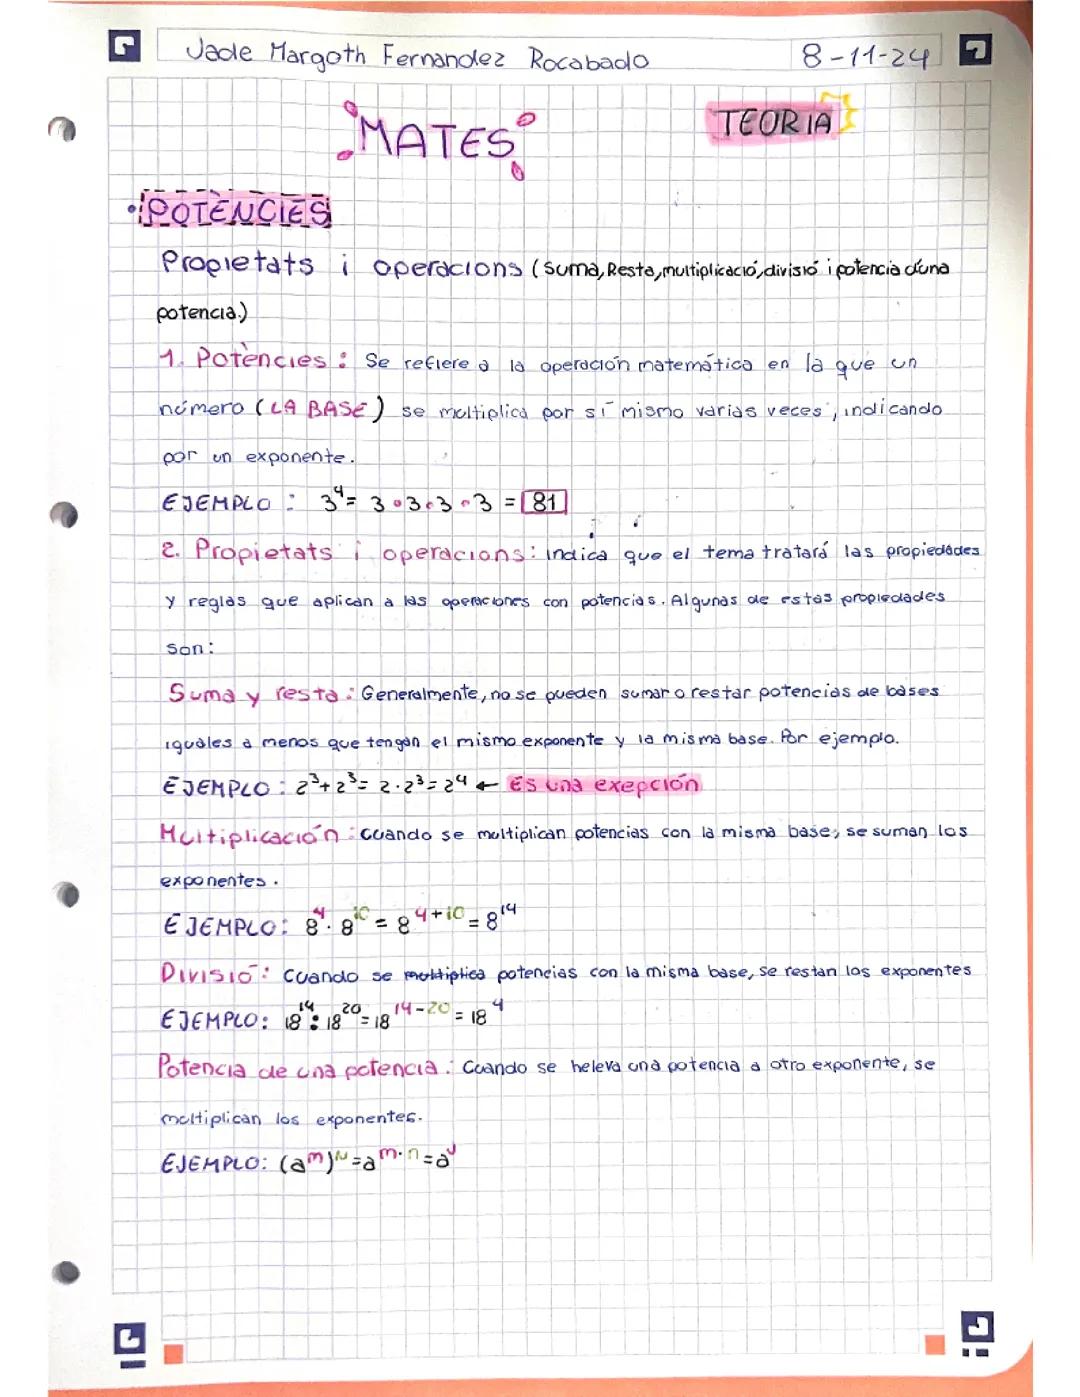 Jade Margoth Fernandez Rocabado 8-11-24
MATES TEORIA
•POTÈNCIES
Propietats i operacions (suma, Resta, multiplicació, divisió i potencia d'una
potencia.)
1. Potències: Se refiere a la operación matemática en la que un
número (LA BASE) se multiplica por sí mismo varias veces, indicando
por un exponente.
EJEMPLO: 3⁴= 3·3·3·3 = 81
2. Propietats i operacions: indica que el tema tratará las propiedades
y reglas que aplican a las operaciones con potencias. Algunas de estas propiedades
son:
Suma y resta: Generalmente, no se pueden sumar o restar potencias de bases
iguales a menos que tengan el mismo exponente y la misma base. Por ejemplo.
EJEMPLO: 2³+2³= 2·2³= 2⁴ ← Es una exepción
Multiplicación: cuando se multiplican potencias con la misma base, se suman los
exponentes.
EJEMPLO: 8⁴·8¹⁰ = 8⁴⁺¹⁰ = 8¹⁴
Divisió: Cuando se multiplica potencias con la misma base, se restan los exponentes
EJEMPLO: 18¹⁴:18²⁰=18¹⁴⁻²⁰ = 18⁴
Potencia de una potencia: Cuando se heleva una potencia a otro exponente, se
multiplican los exponentes.
EJEMPLO: (aᵐ)ᴺ=aᵐ·ⁿ=aᴶ